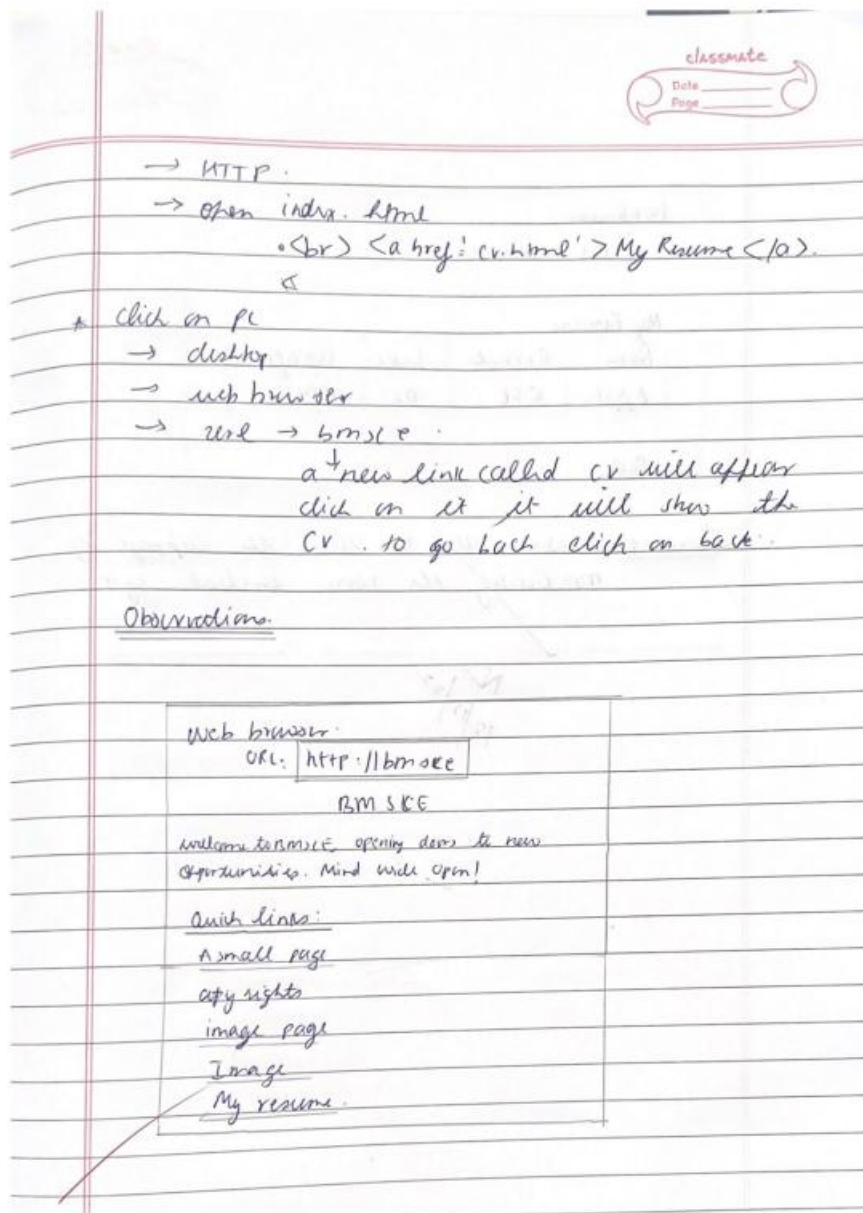 classmate
Date
Page
→ HTTP.
→ open index.html
•<br> <a href='cv.html'> My Resume </a>.
* click on pc
→ desktop
→ web browser
→ url → bmsce.
↓
a new link called cv will appear
click on it it will show the
cv. to go back click on back.
Observations.
Web browser.
URL: http://bmsce
BMSCE
Welcome to BMSCE, opening doors to new
opportunities. Mind wide open!
Quick links:
A small page
copy rights
image page
Image
My resume.